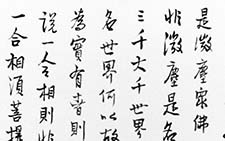 是微塵眾佛
非微塵是名
三千大千世界
名世界何以故
為實有者則
說一合相則非
一合相須菩提